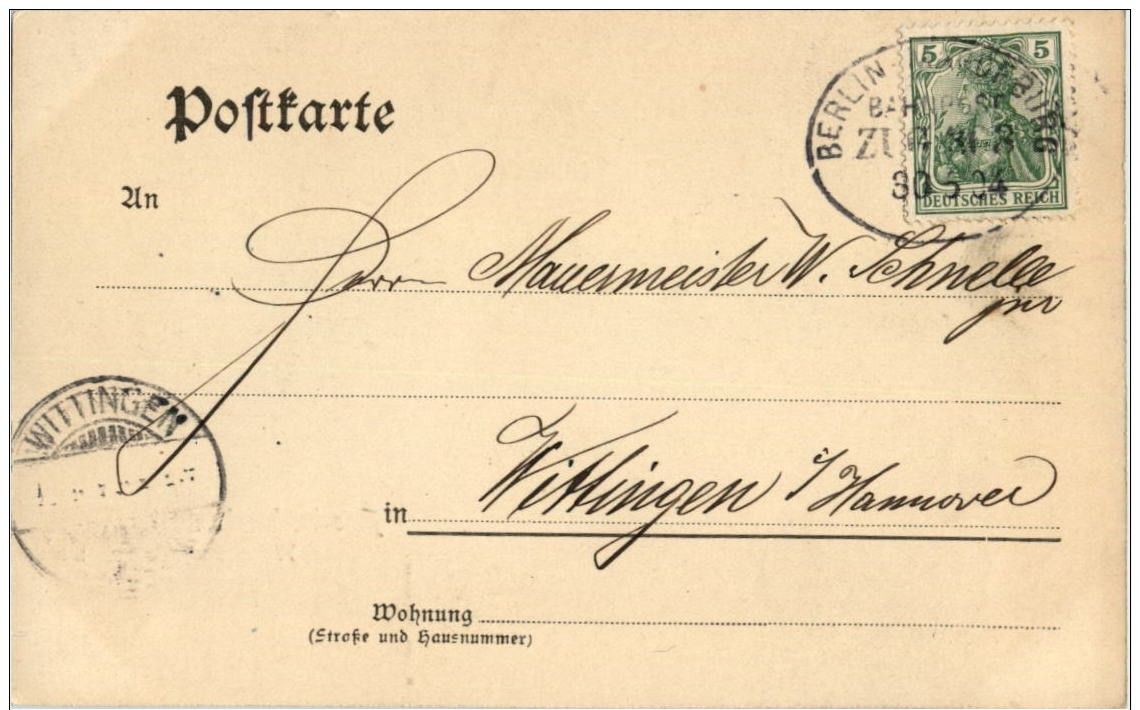 Postkarte
5 5
DEUTSCHES REICH
BERLIN
BAHNPOST
ZUG
30 5 04
An
Herrn Mauermeister W. Schnelle
jnr
WITTINGEN
in Wittingen i/Hannover
Wohnung
(Straße und Hausnummer)